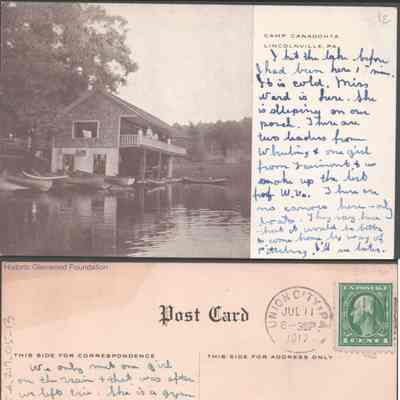 CAMP CANADOHTA
LINCOLNVILLE, PA.
I hit the lake before
I had been here 1 min.
It is cold. Miss
Ward is here. She
is sleeping on our
porch. There are
two leaders from
Wheeling & one girl
from Fairmont & we
make up the list
for W. Va. There are
no canoes here only
boats. They say here
that it would be better
to come home by way of
I'll see later.
Historic Glenwood Foundation
Post Card
UNION CITY, PA.
JUL 11
6-30P
1917
U.S. POSTAGE
1 CENT 1
THIS SIDE FOR CORRESPONDENCE
THIS SIDE FOR ADDRESS ONLY
We only met one girl
on the train & that was after
we left Erie. She is a gym